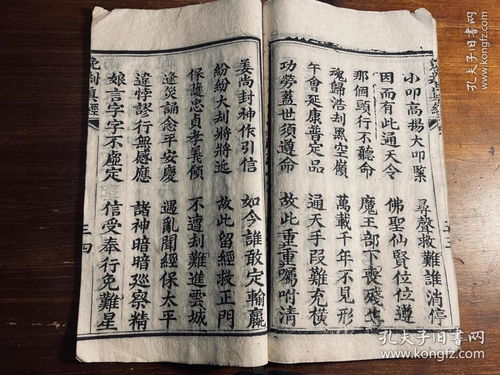 真經
小叩高揚大叩 尋聲救難誰消停
因而有此通天令 佛聖仙賢位位遵
那個頭行不聽命 魔王部下喪
魂歸浩刼黑空嶺 萬載千年不見形
午會延康普定品 通天手段難充橫
功勞蓋世須遵命 故此重重囑咐清
姜尚封神作引信 如今誰敢定輸贏
紛紛大刼將將近 故此留經救正門
保護忠貞孝義傾 不遭刼難進雲城
逢災誦念平安慶 遇亂聞經保太平
違悖謬行無感應 諸神暗暗廵察精
娘言字字不虛定 信受奉行免難星
免刼真經 三四
孔夫子旧书网
www.kongfz.com
孔夫子旧书网
www.kongfz.com